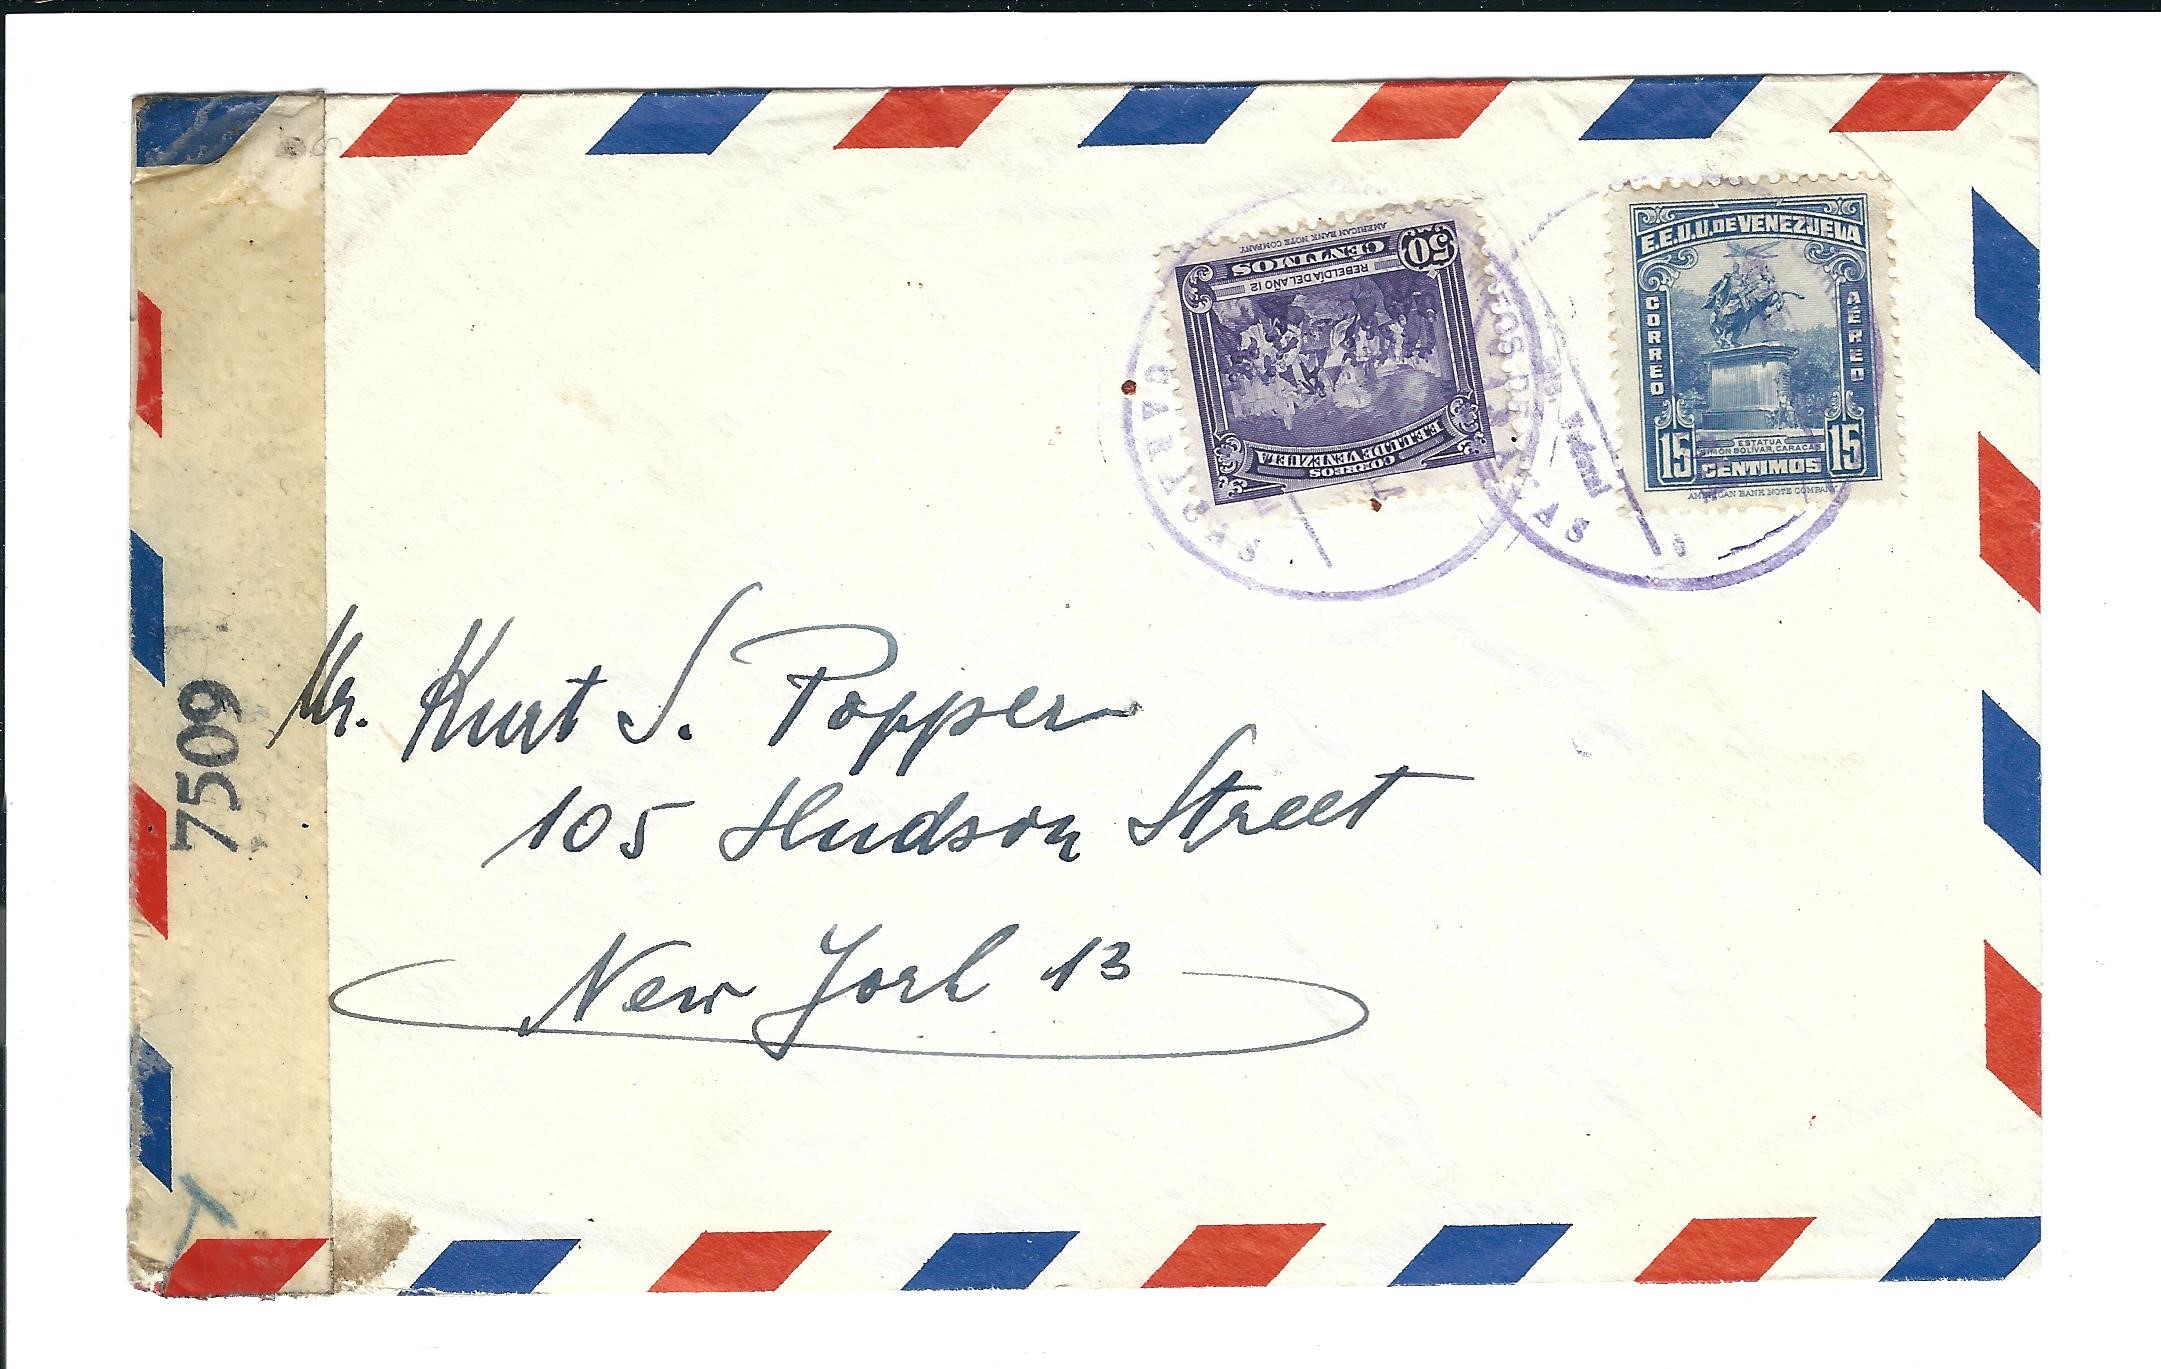 50
CENTIMOS
AMERICAN BANK NOTE COMPANY.
REBELDIA DEL AÑO 12
CORREOS
E.E.U.U. DE VENEZUELA
E.E.U.U. DE VENEZUELA
CORREO
AEREO
ESTATUA
SIMÓN BOLIVAR, CARACAS
15 CENTIMOS 15
AMERICAN BANK NOTE COMPANY
CARACAS
7509
Mr. Kurt S. Popper
105 Hudson Street
New York 13